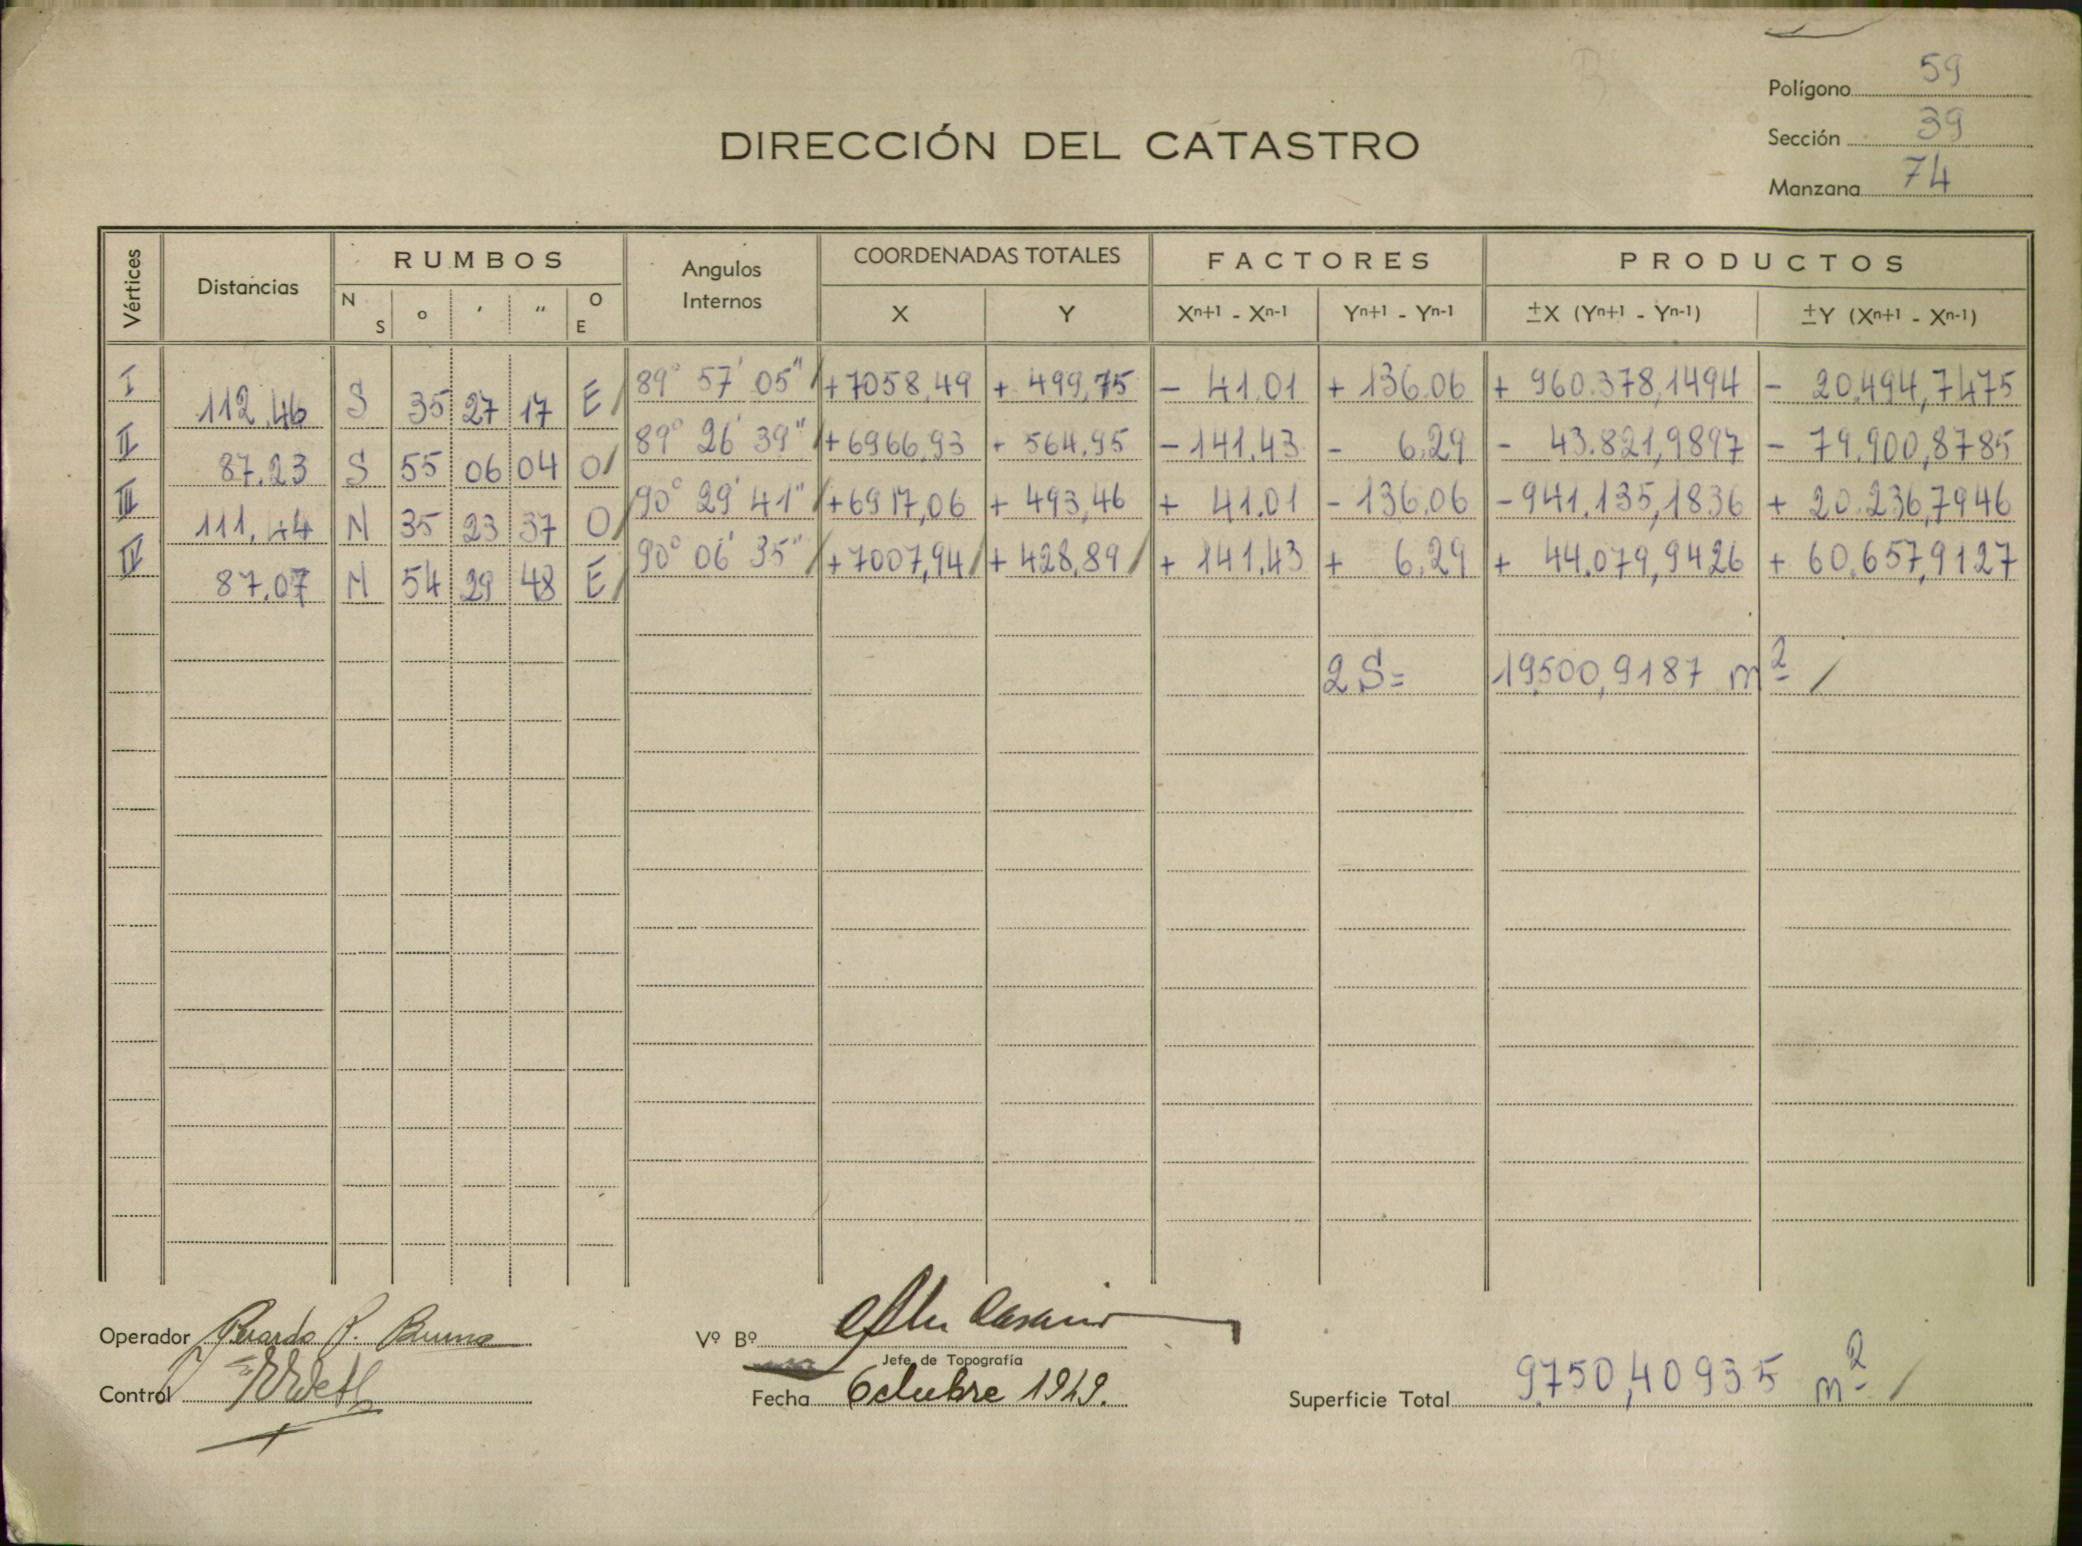 Polígono 59
Sección 39
Manzana 74
DIRECCIÓN DEL CATASTRO
Vértices Distancias RUMBOS Angulos Internos COORDENADAS TOTALES FACTORES PRODUCTOS
N S o ′ ″ O E X Y Xn+1 - Xn-1 Yn+1 - Yn-1 ±X (Yn+1 - Yn-1) ±Y (Xn+1 - Xn-1)
I 112,46 S 35 27 17 E 89° 57′ 05″ +7058,49 + 499,75 - 41.01 + 136.06 + 960.378,1494 - 20.494,7475
II 87.23 S 55 06 04 O 89° 26′ 39″ +6966,93 + 564,95 - 141.43 - 6.29 - 43.821,9897 - 79.900,8785
III 111,44 N 35 23 37 O 90° 29′ 41″ +6917,06 + 493,46 + 41.01 - 136,06 - 941.135,1836 + 20.236,7946
IV 87.07 N 54 29 48 E 90° 06′ 35″ +7007,94 + 428,89 + 141.43 + 6.29 + 44.079,9426 + 60.657,9127
2S= 19.500,9187 m2
Operador
Control
Vº Bº
Jefe de Topografía
Fecha Octubre 1949.
Superficie Total 9.750,40935 m2